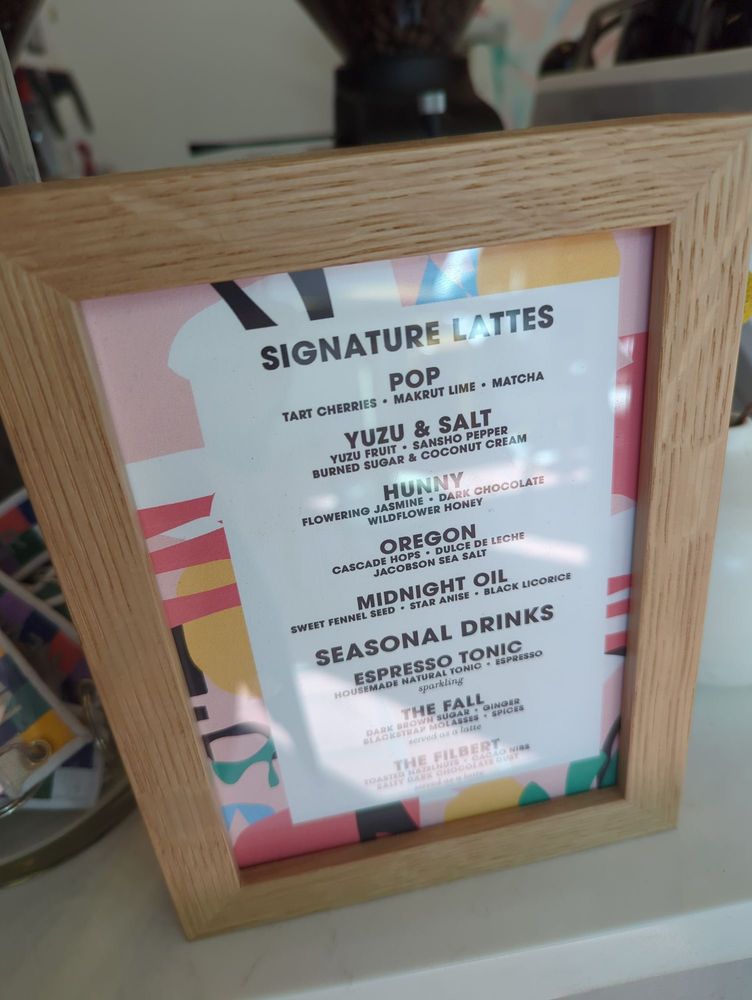 SIGNATURE LATTES
POP
TART CHERRIES • MAKRUT LIME • MATCHA
YUZU & SALT
YUZU FRUIT • SANSHO PEPPER
BURNED SUGAR & COCONUT CREAM
HUNNY
FLOWERING JASMINE • DARK CHOCOLATE
WILDFLOWER HONEY
OREGON
CASCADE HOPS • DULCE DE LECHE
JACOBSON SEA SALT
MIDNIGHT OIL
SWEET FENNEL SEED • STAR ANISE • BLACK LICORICE
SEASONAL DRINKS
ESPRESSO TONIC
HOUSEMADE NATURAL TONIC • ESPRESSO
sparkling
THE FALL
DARK BROWN SUGAR • GINGER
BLACKSTRAP MOLASSES • SPICES
served as a latte
THE FILBERT
TOASTED HAZELNUTS • CACAO NIBS
SALTY DARK CHOCOLATE DUST
served as a latte